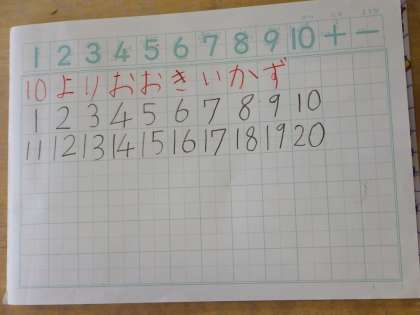 1 2 3 4 5 6 7 8 9 10 + −
10よりおおきいかず
1 2 3 4 5 6 7 8 9 10
11 12 13 14 15 16 17 18 19 20